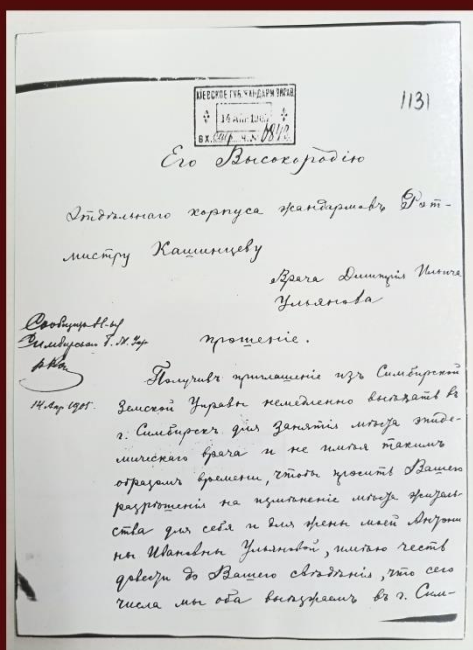 1131
ІЕВСКОЕ ГУБ. ЖАНДАРМ. УПРАВ.
14 АПР. 190
ВХ. № 0842
Его Высокородію
Отдѣльнаго корпуса жандармовъ Рот-
мистру Кашинцеву
Врача Дмитрія Ильича
Ульянова
прошеніе.
Сообщить
Симбирск
14 Апр 1905.
Получивъ приглашеніе изъ Симбирской
Земской Управы немедленно выѣхать въ
г. Симбирскъ для занятія мѣста эпиде-
мическаго врача и не имѣя такимъ
образомъ времени, чтобы просить Вашего
разрѣшенія на измѣненіе мѣста житель-
ства для себя и для жены моей Антони-
ны Ивановны Ульяновой, имѣю честь
довести до Вашего свѣдѣнія, что сего
числа мы оба выѣзжаемъ въ г. Сим-